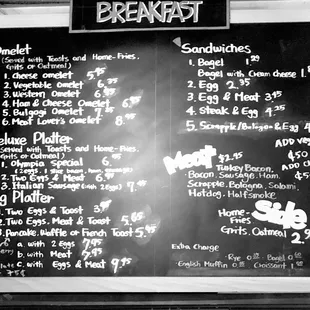 BREAKFAST
Omelet
(Served with Toasts and Home-Fries.
Grits or Oatmeal)
1. Cheese Omelet 5.95
2. Vegetable Omelet 6.95
3. Western Omelet
4. Ham & Cheese Omelet
5. Bulgogi Omelet
6. Meat Lover's 8.95
Deluxe Platter
Served with Toasts and Home-Fries.
(Grits or Oatmeal)
1. Olympia Special 6.
2. Two Eggs & Meat 6.
3. Italian Sausage (with 2 Eggs) 7.95
Platter
1. Two Eggs & Toast 3.
2. Two Eggs, Meat & Toast 5.
3. Pancake, Waffle or French Toast 5.95
a. with 2 Eggs 7.95
b. with Meat 7.95
c. with Eggs & Meat 9.95
Sandwiches
1. Bagel 1.29
Bagel with Cream cheese 1.
2. Egg 2.95
3. Egg & Meat 3.95
4. Steak & Egg 4.25
5. Scrapple/Bologna & Egg 4
ADD
$50
ADD
$50
Meat $2.95
Turkey Bacon,
Bacon, Sausage, Ham,
Scrapple, Bologna, Salami,
Hotdog, Halfsmoke
Side
Home-Fries
Grits, Oatmeal 2.
Extra Charge
- Rye - Bagel
- English Muffin - Croissant 1